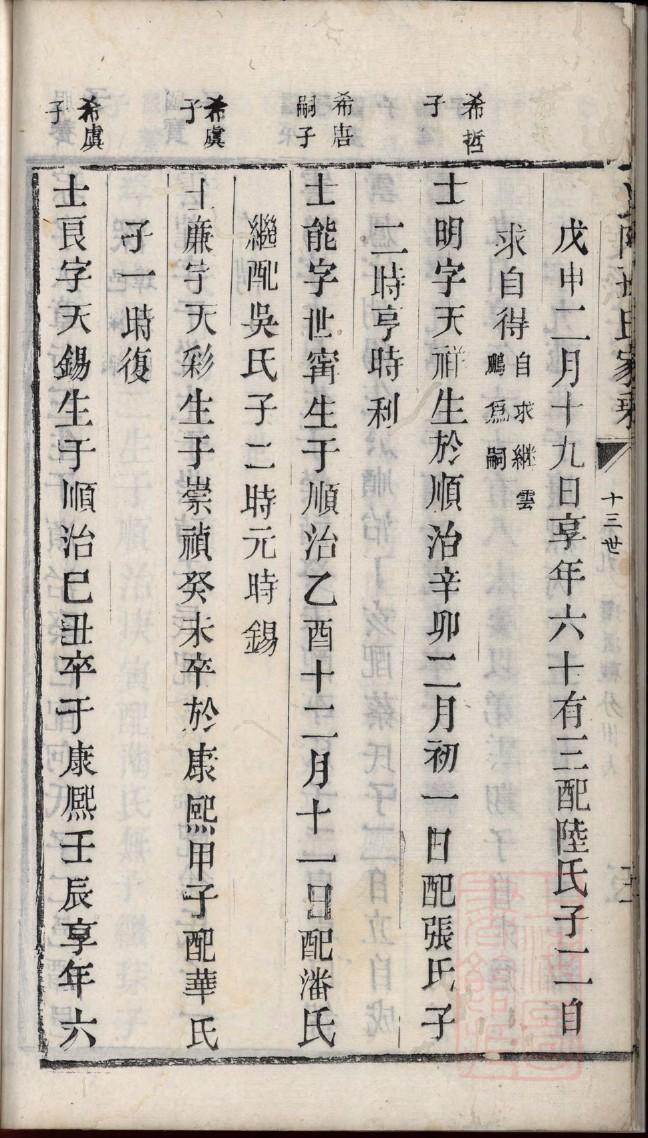 戊申二月十九日享年六十有三配陸氏子二自
求自得自求繼雲鵬為嗣
希哲子
士明字天祥生於順治辛卯二月初一日配張氏子
二時亨時利
希唐嗣子
士能字世甯生于順治乙酉十二月十一日配潘氏
繼配吳氏子二時元時錫
希虞子
士廉字天彩生于崇禎癸未卒於康熙甲子配華氏
子一時復
希虞子
士良字天錫生于順治己丑卒于康熙壬辰享年六
氏家乘
十三世